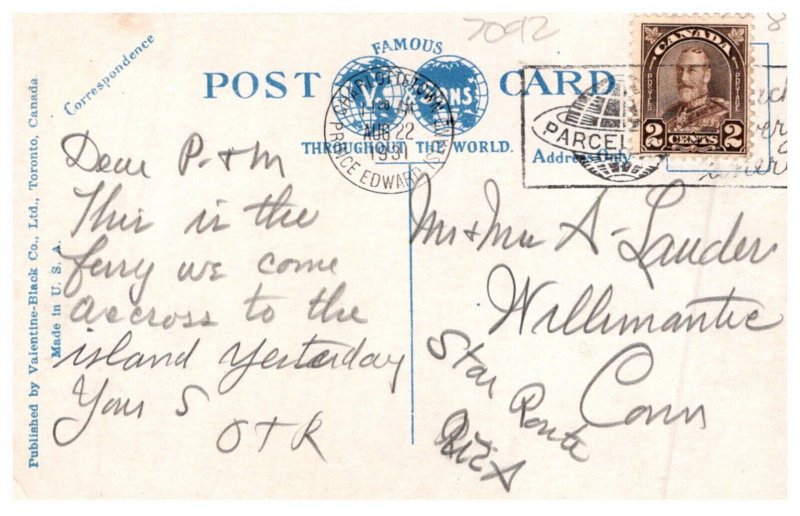 7092
8
FAMOUS
POST CARD
V. & SONS
THROUGHOUT THE WORLD.
Correspondence
Address Only
Published by Valentine-Black Co., Ltd., Toronto, Canada
Made in U. S. A.
CHARLOTTETOWN
AUG 22
1931
PRINCE EDWARD ISD
PARCEL
CANADA
POSTES POSTAGE
2 CENTS 2
Dear P. & M
This is the
ferry we come
accross to the
island yesterday
Your S
O T R
Mr & Mrs A - Lauder
Willimantic
Star Route
Conn